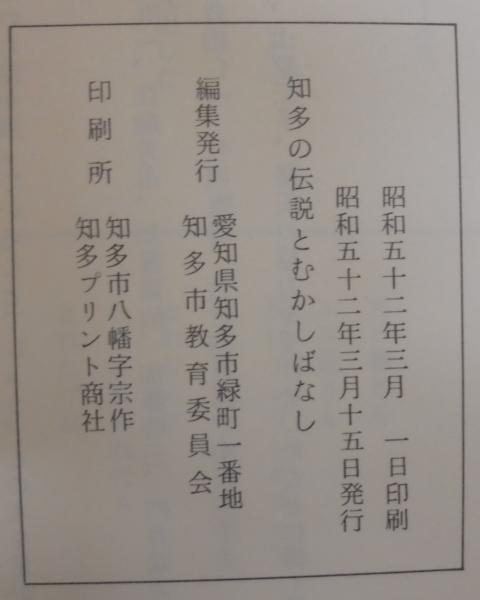 昭和五十二年三月　一日印刷
昭和五十二年三月十五日発行
知多の伝説とむかしばなし
編集発行
愛知県知多市緑町一番地
知多市教育委員会
印刷所
知多市八幡字宗作
知多プリント商社